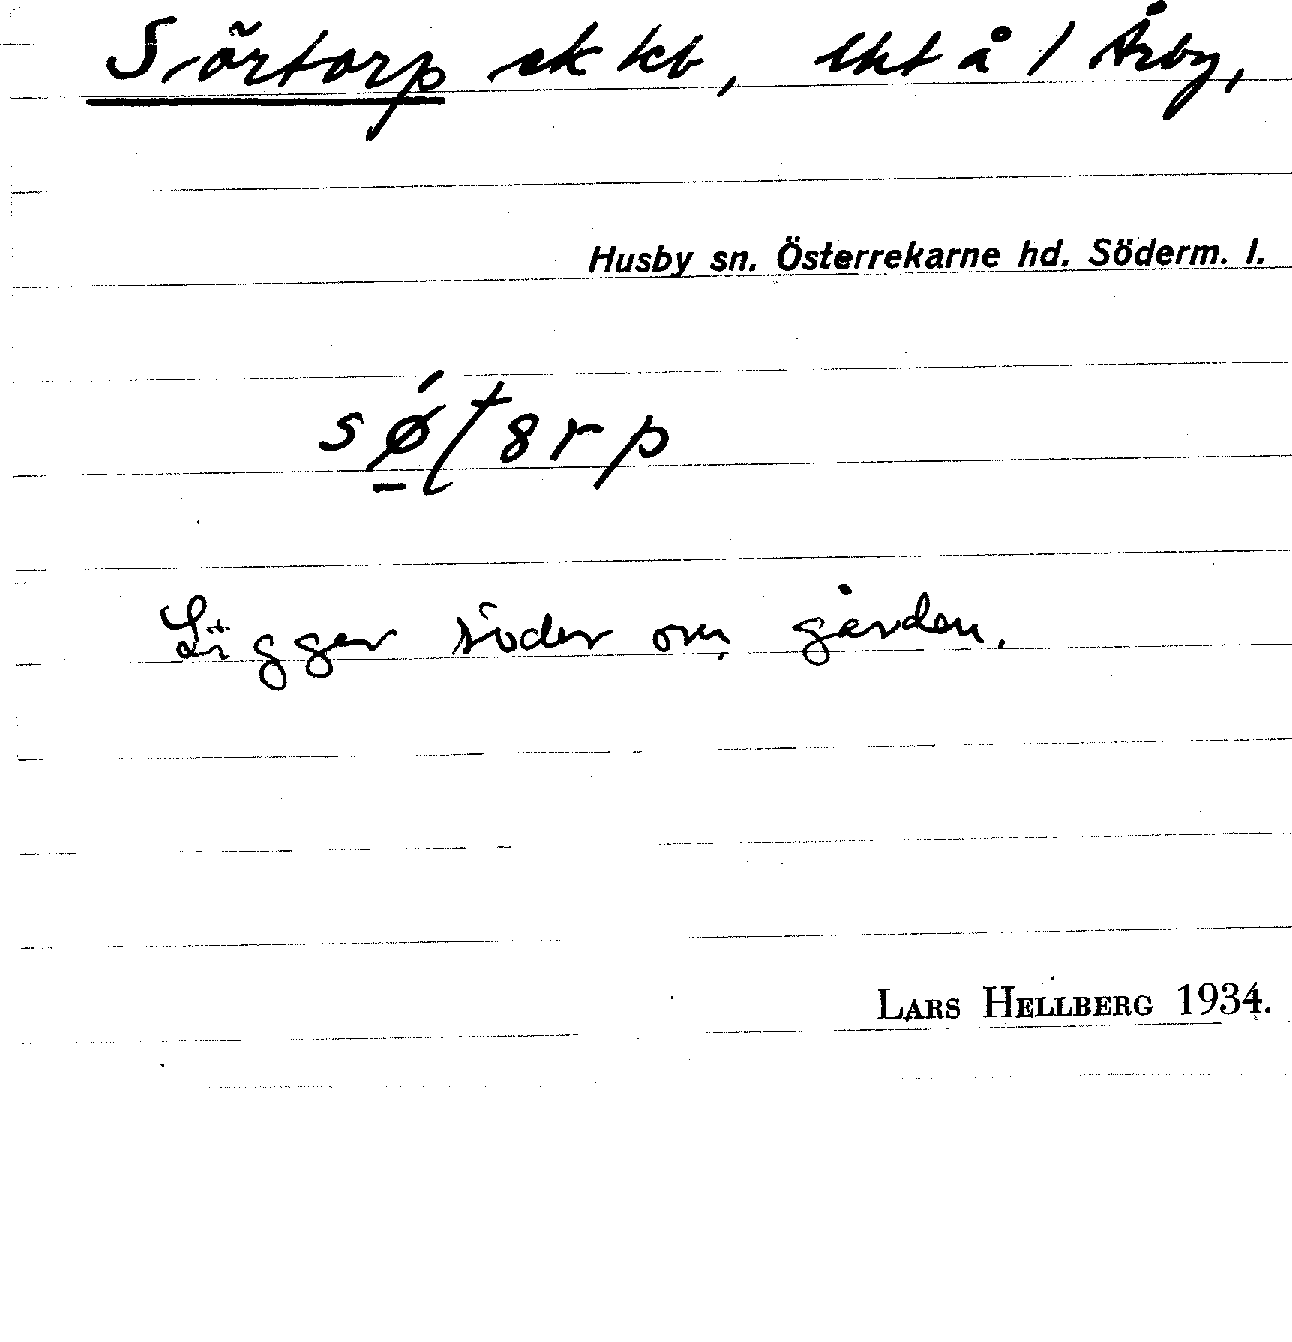 Sörtorp ek kb, lht å 1 Årby,
Husby sn. Österrekarne hd. Söderm. l.
Ligger söder om gården.
LARS HELLBERG 1934.